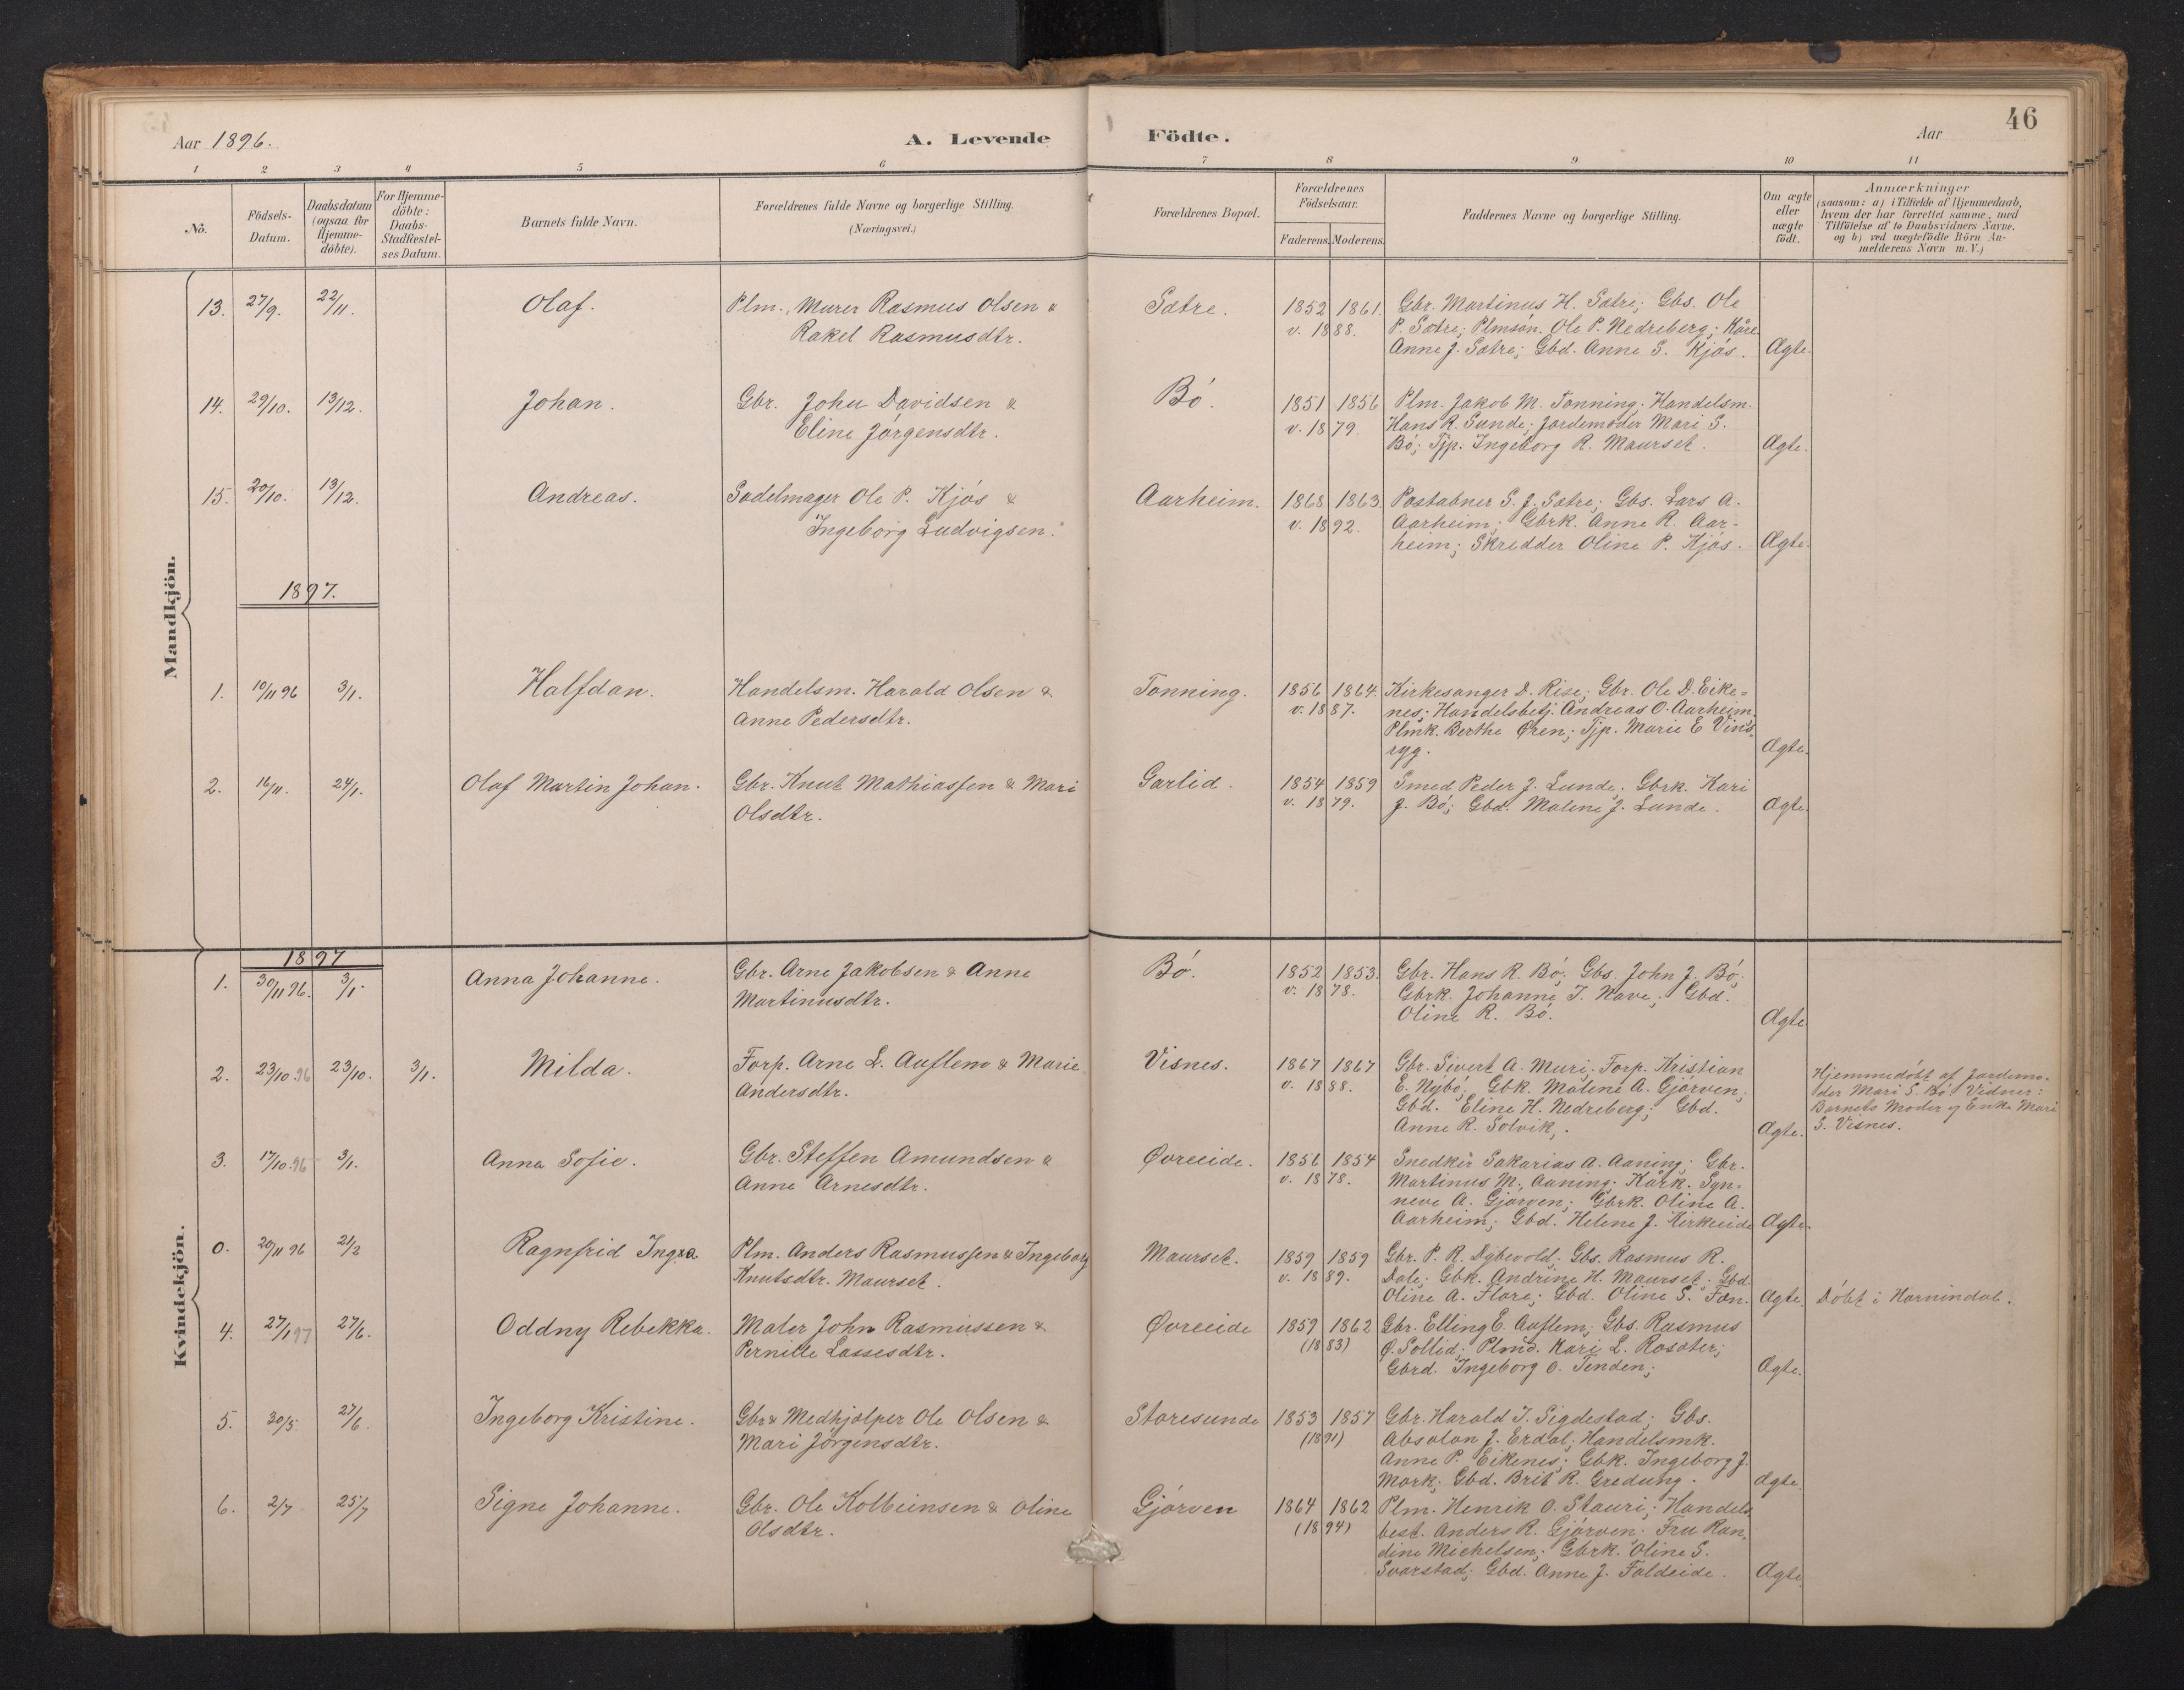 46
Aar 1896.
A. Levende Födte.
Aar
1 2 3 4 5 6 7 8 9 10 11
No.
Födsels-Datum.
Daabsdatum (ogsaa for Hjemme-döbte).
For Hjemme-döbte: Daabs-Stadfæstel-ses Datum.
Barnets fulde Navn.
Forældrenes fulde Navne og borgerlige Stilling.
(Næringsvei.)
Forældrenes Bopæl.
Forældrenes Födselsaar.
Faderens. Moderens.
Faddernes Navne og borgerlige Stilling.
Om ægte eller uægte födt.
Anmærkninger
(saasom: a) i Tilfælde af Hjemmedaab,
hvem der har forrettet samme, med
Tilföielse af to Daabsvidners Navne,
og b) ved uægtefödte Börn An-
melderens Navn m. V.)
Mandkjön.
13. 27/9. 22/11. Olaf. Plm., Murer Rasmus Olsen & Sætre. 1852 1861. Gbr. Martinus H. Sætre; Gbs. Ole
Rakel Rasmusdtr. v. 1888. P. Sætre; Plmsøn. Ole P. Nedreberg; Kåre
Anne J. Sætre; Gbd. Anne S. Kjøs. Ægte.
14. 29/10. 13/12. Johan. Gbr. John Davidsen & Bø. 1851 1856 Plm. Jakob M. Tonning; Handelsm.
Eline Jørgensdtr. v. 1879. Hans R. Sunde; Jordemoder Mari S.
Bø; Tjp. Ingeborg R. Maurset. Ægte.
15. 20/10. 13/12. Andreas. Sadelmager Ole P. Kjøs & Aarheim. 1868 1863. Postaabner S. J. Sætre; Gbs. Lars A.
Ingeborg Ludvigsen. v. 1892. Aarheim; Gbrk. Anne R. Aar-
heim; Skredder Oline P. Kjøs. Ægte.
1897.
1. 10/11 96 3/1. Halfdan. Handelsm. Harald Olsen & Tonning. 1856 1864. Kirkesanger D. Rise; Gbr. Ole D. Eike=
Anne Pedersdtr. v. 1887. nes; Handelsbetj. Andreas O. Aarheim.
Plmk. Berthe Øren; Tjp. Marie E Vins-
ryg. Ægte.
2. 16/11. 24/1. Olaf Martin Johan. Gbr. Knut Mathiassen & Mari Garlid. 1854 1859 Smed Peder J. Lunde. Gbrk. Kari
Olsdtr. v. 1879. J. Bø; Gbd. Malene J. Lunde. Ægte.
Kvindekjön.
1897
1. 30/11 96. 3/1. Anna Johanne. Gbr. Arne Jakobsen & Anne Bø. 1852 1853. Gbr. Hans R. Bø; Gbs. John J. Bø;
Martinusdtr. v. 1878. Gbrk. Johanne J. Nave; Gbd.
Oline R. Bø. Ægte
2. 23/10.96 23/10. 3/1. Milda. Forp. Arne L. Auflem & Marie Visnes. 1867 1867 Gbr. Sivert A. Muri; Forp. Kristian Hjemmedøbt af Jordemo-
Andersdtr. v. 1888. E. Nybø; Gbk. Malene A. Gjørven; der Mari S. Bø. Vidner:
Gbd. Eline H. Nedreberg; Gbd. Barnets Moder og Enke Mari
Anne R. Solvik. Ægte. S. Visnes.
3. 17/10.96 3/1. Anna Sofie. Gbr. Steffen Amundsen & Øvreeide. 1856 1854 Snedker Sakarias A. Aaning; Gbr.
Anne Arnesdtr. v. 1878. Martinus M. Aaning; Kårk. Syn=
neve A. Gjørven; Gbrk. Oline A.
Aarheim; Gbd. Helene J. Kirkeeide Ægte.
0. 20/11 96 21/2 Ragnfrid Inga Plm. Anders Rasmussen & Ingeborg Maurset. 1859 1859 Gbr. P. R. Dybevold; Gbs. Rasmus R.
Knutsdtr. Maurset. v. 1889. Dale; Gbk. Andrine H. Maurset; Gbd.
Oline A. Flore; Gbd. Oline S. Tæn. Ægte. Døbt i Hornindal.
4. 27/1 97 27/6. Oddny Rebekka. Maler John Rasmussen & Øvreeide 1859 1862 Gbr. Elling E. Auflem; Gbs. Rasmus
Pernille Lassesdtr. (1883) Ø. Sollid; Plmd. Kari L. Rosæter;
Gbrd. Ingeborg O. Tenden; Ægte.
5. 30/5. 27/6. Ingeborg Kristine. Gbr & Medhjælper Ole Olsen & Storesunde 1853 1857 Gbr. Harald J. Sigdestad; Gbs.
Mari Jørgensdtr. (1891) Absolon J. Erdal; Handelsmk.
Anne P. Eikenes; Gbk. Ingeborg J.
Mork; Gbd. Brit R. Gredung. Ægte
6. 2/7 25/7 Signe Johanne. Gbr. Ole Kolbeinsen & Oline Gjørven 1864 1862 Plm. Henrik O. Stauri; Handels
Olsdtr. (1894) best. Anders R. Gjørven; Fru Ran-
dine Michelsen; Gbrk. Oline S.
Svarstad; Gbd. Anne J. Foldeide. Ægte.